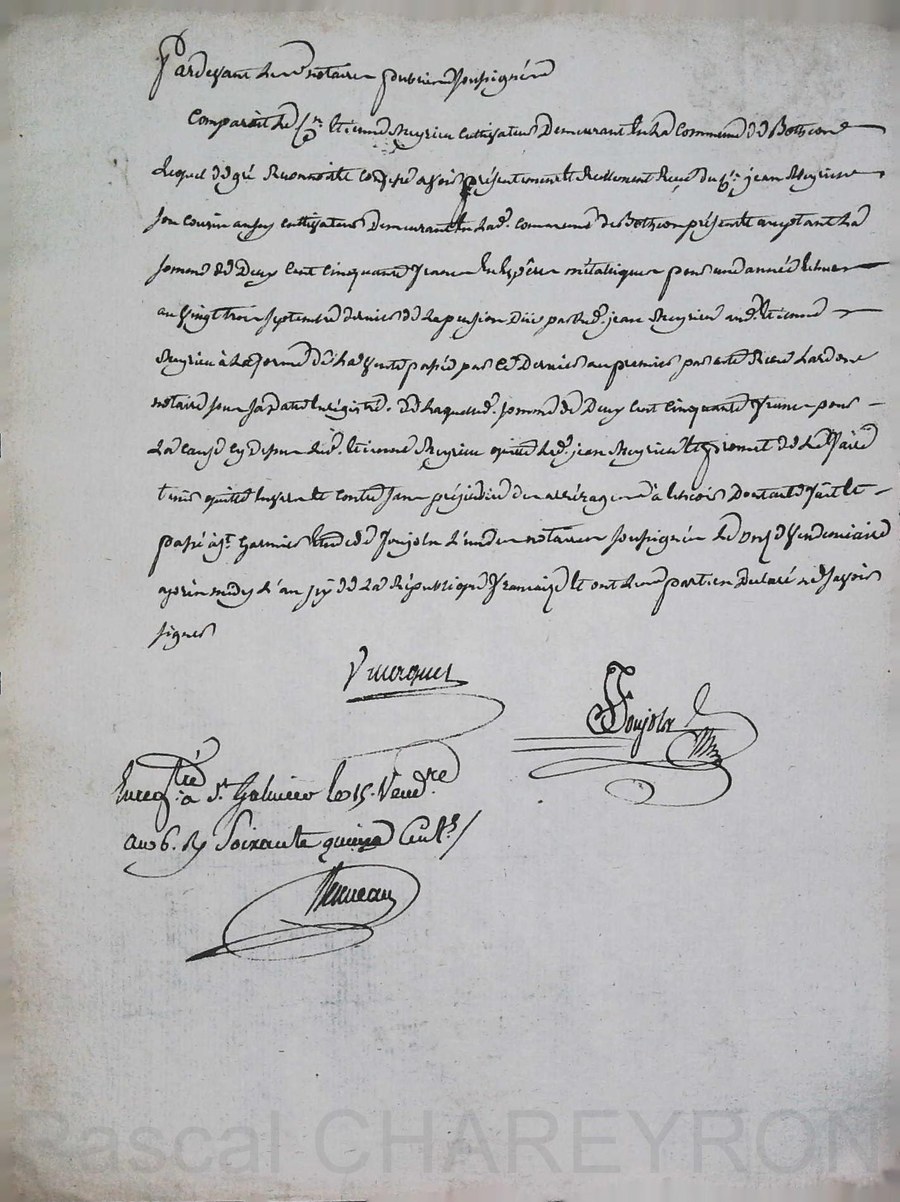 Pardevant les notaires publics soussignés
Comparait le Cn. Etienne Meyrieu cultivateur demeurant en la commune de Bothéon
lequel de gré reconnoit et confesse avoir présentement et réellement reçu du Cn. jean Meyrieu
son cousin aussy cultivateur demeurant en lad. commune de Bothéon présent et acceptant la
somme de deux cent cinquante francs en espèces métalliques pour une année échue
au vingt trois septembre dernier de la pension due par led. jean Meyrieu aud. Etienne
Meyrieu à la forme de la vente passée par ce dernier au premier par acte reçu Lardon
notaire sous sa date enregistré. de laquelle. somme de deux cent cinquante francs pour
la cause cy dessus led. Etienne Meyrieu quitte led. jean Meyrieu et promet de le faire
tenir quitte envers et contre sans préjudice des arrérages à échoir dont acte fait et
passé à St. Garmier étude de Poujola l'un des notaires soussignés le onze vendemiaire
après midy l'an six de la République française et ont les parties déclaré ne savoir
signer
Poujola
Enregtré. à St. Galmier le 15. Vendre.
an 6. R Soixante quinze Cent.s/